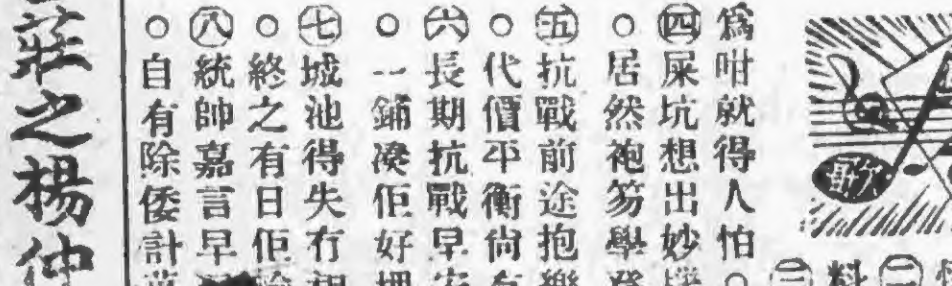 二
料三
為咁就得人怕○
四屎坑想出妙
○居然袍笏學登
五抗戰前途抱樂
○代價平衡尙有
六長期抗戰早
○一鋪凑佢好
七城池得失冇
○終之有日佢
八統帥嘉言早
○自有除倭計
莊之楊仲
歌